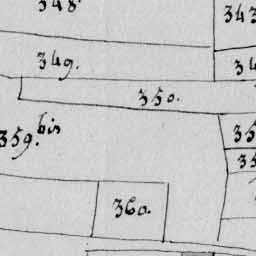 348.
343
349.
34
350.
359.bis
35
35
360.